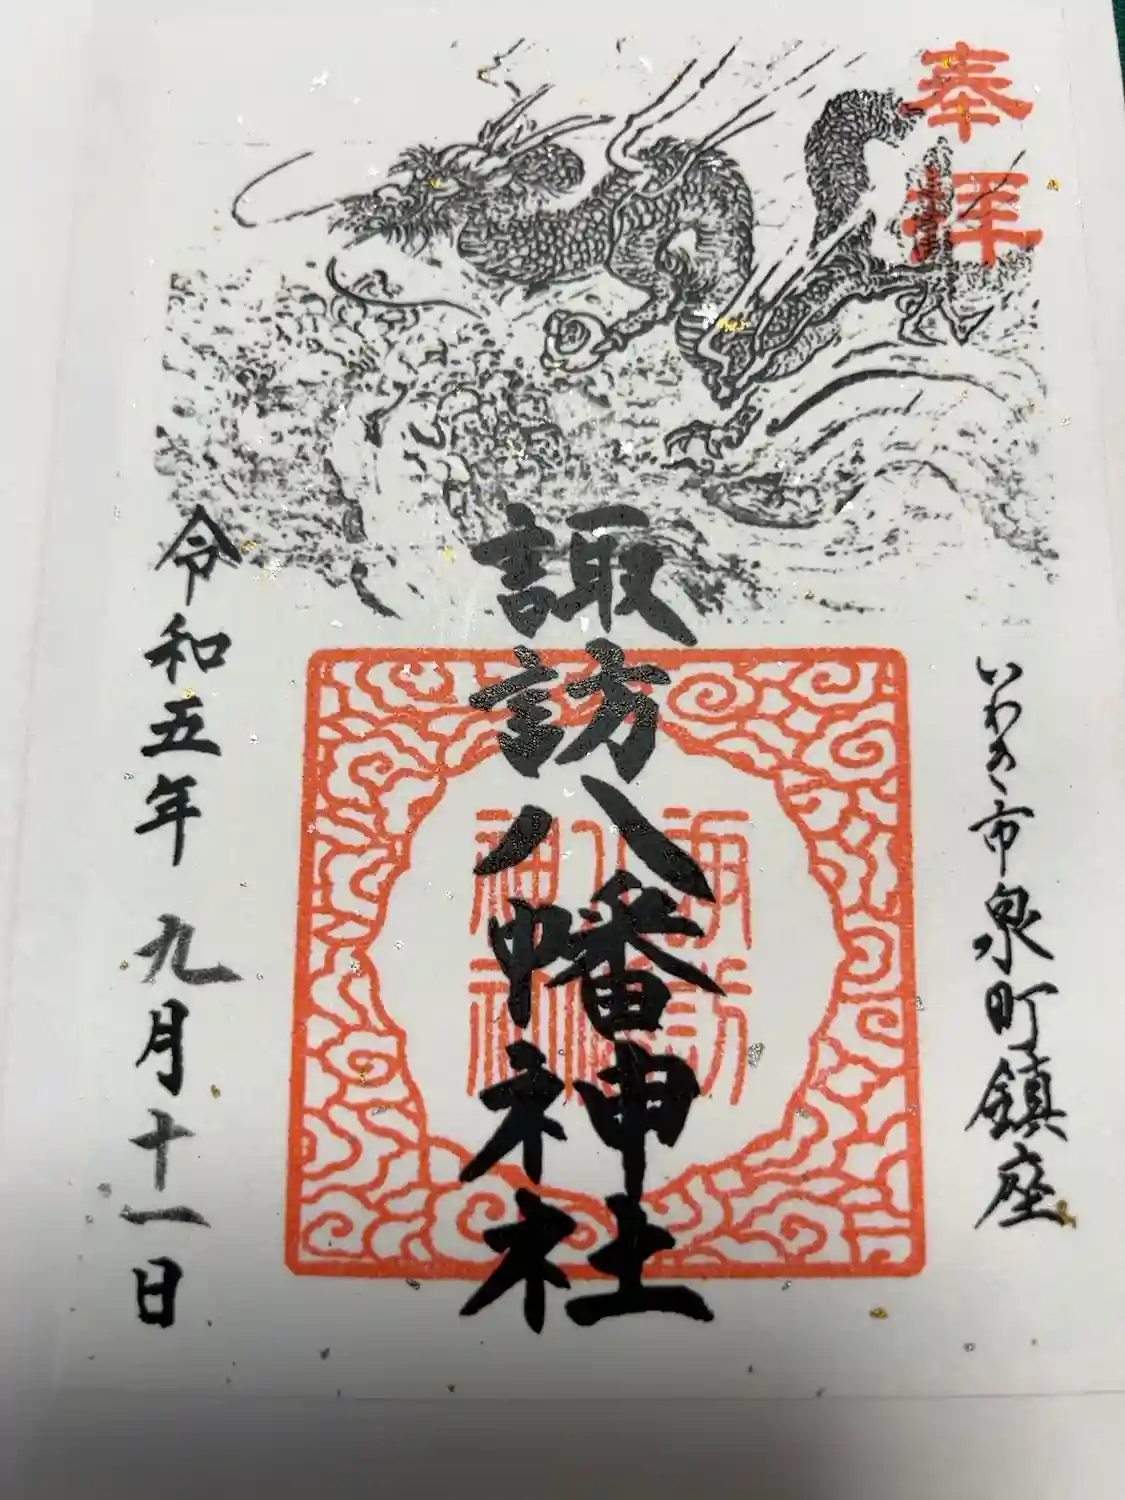 奉拝
いわき市泉町鎮座
諏訪八幡神社
令和五年 九月十一日